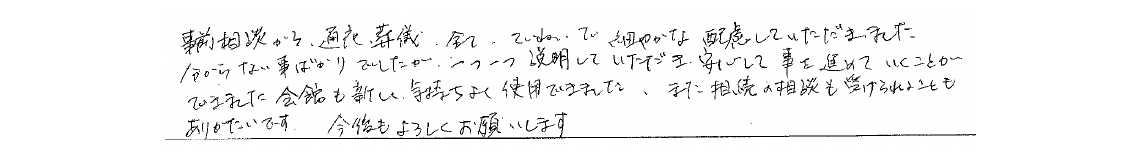 事前相談から、通夜、葬儀、全て、ていねいで細やかな配慮していただきました
分からない事ばかりでしたが、一つ一つ説明していただき安心して事を進めていくことが
できました 会館も新しく気持ちよく使用できました、また相続の相談も受けられることも
ありがたいです 今後もよろしくお願いします